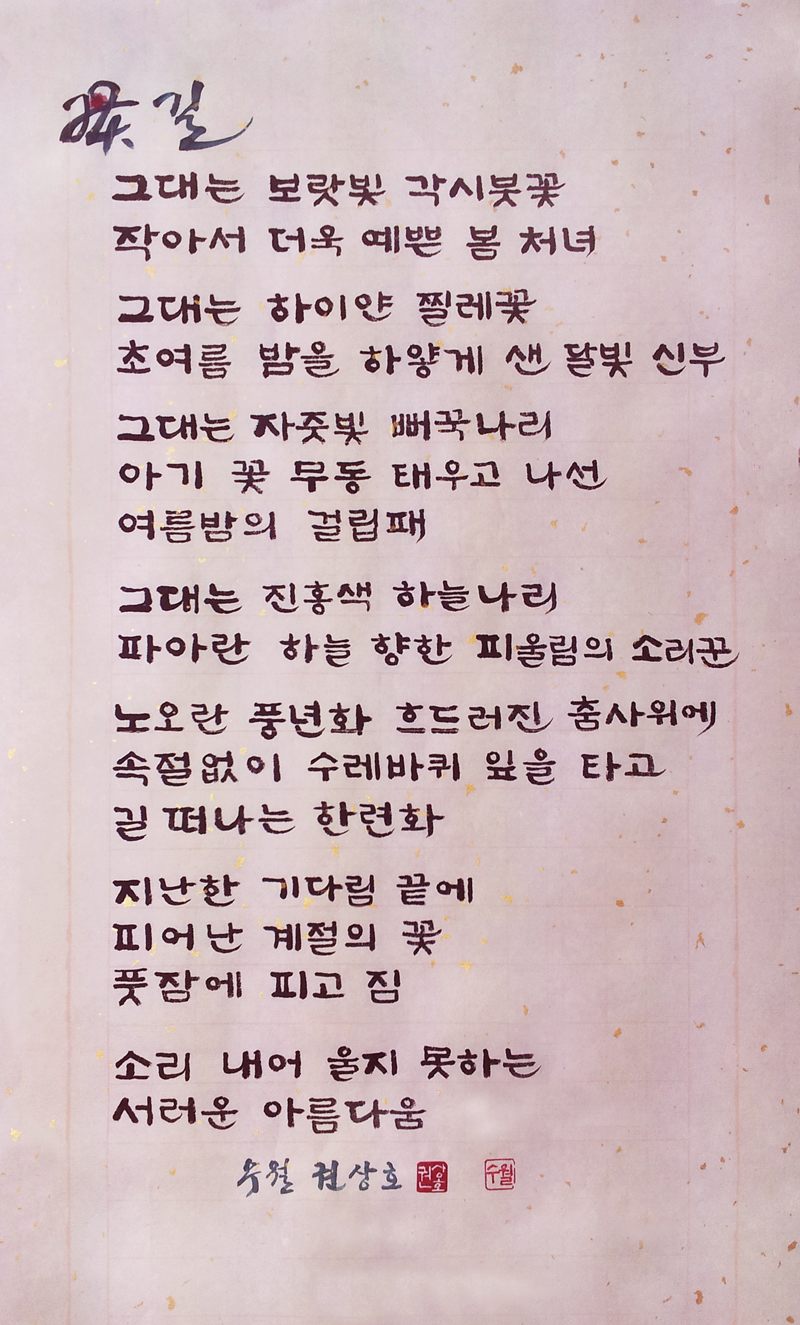 꽃길
그대는 보랏빛 각시붓꽃
작아서 더욱 예쁜 봄 처녀
그대는 하이얀 찔레꽃
초여름 밤을 하얗게 샌 달빛 신부
그대는 자줏빛 뻐꾹나리
아기 꽃 무동 태우고 나선
여름밤의 걸립패
그대는 진홍색 하늘나리
파아란 하늘 향한 피울림의 소리꾼
노오란 풍년화 흐드러진 춤사위에
속절없이 수레바퀴 잎을 타고
길 떠나는 한련화
지난한 기다림 끝에
피어난 계절의 꽃
풋잠에 피고 짐
소리 내어 울지 못하는
서러운 아름다움
수월 권상호 권상호 수월